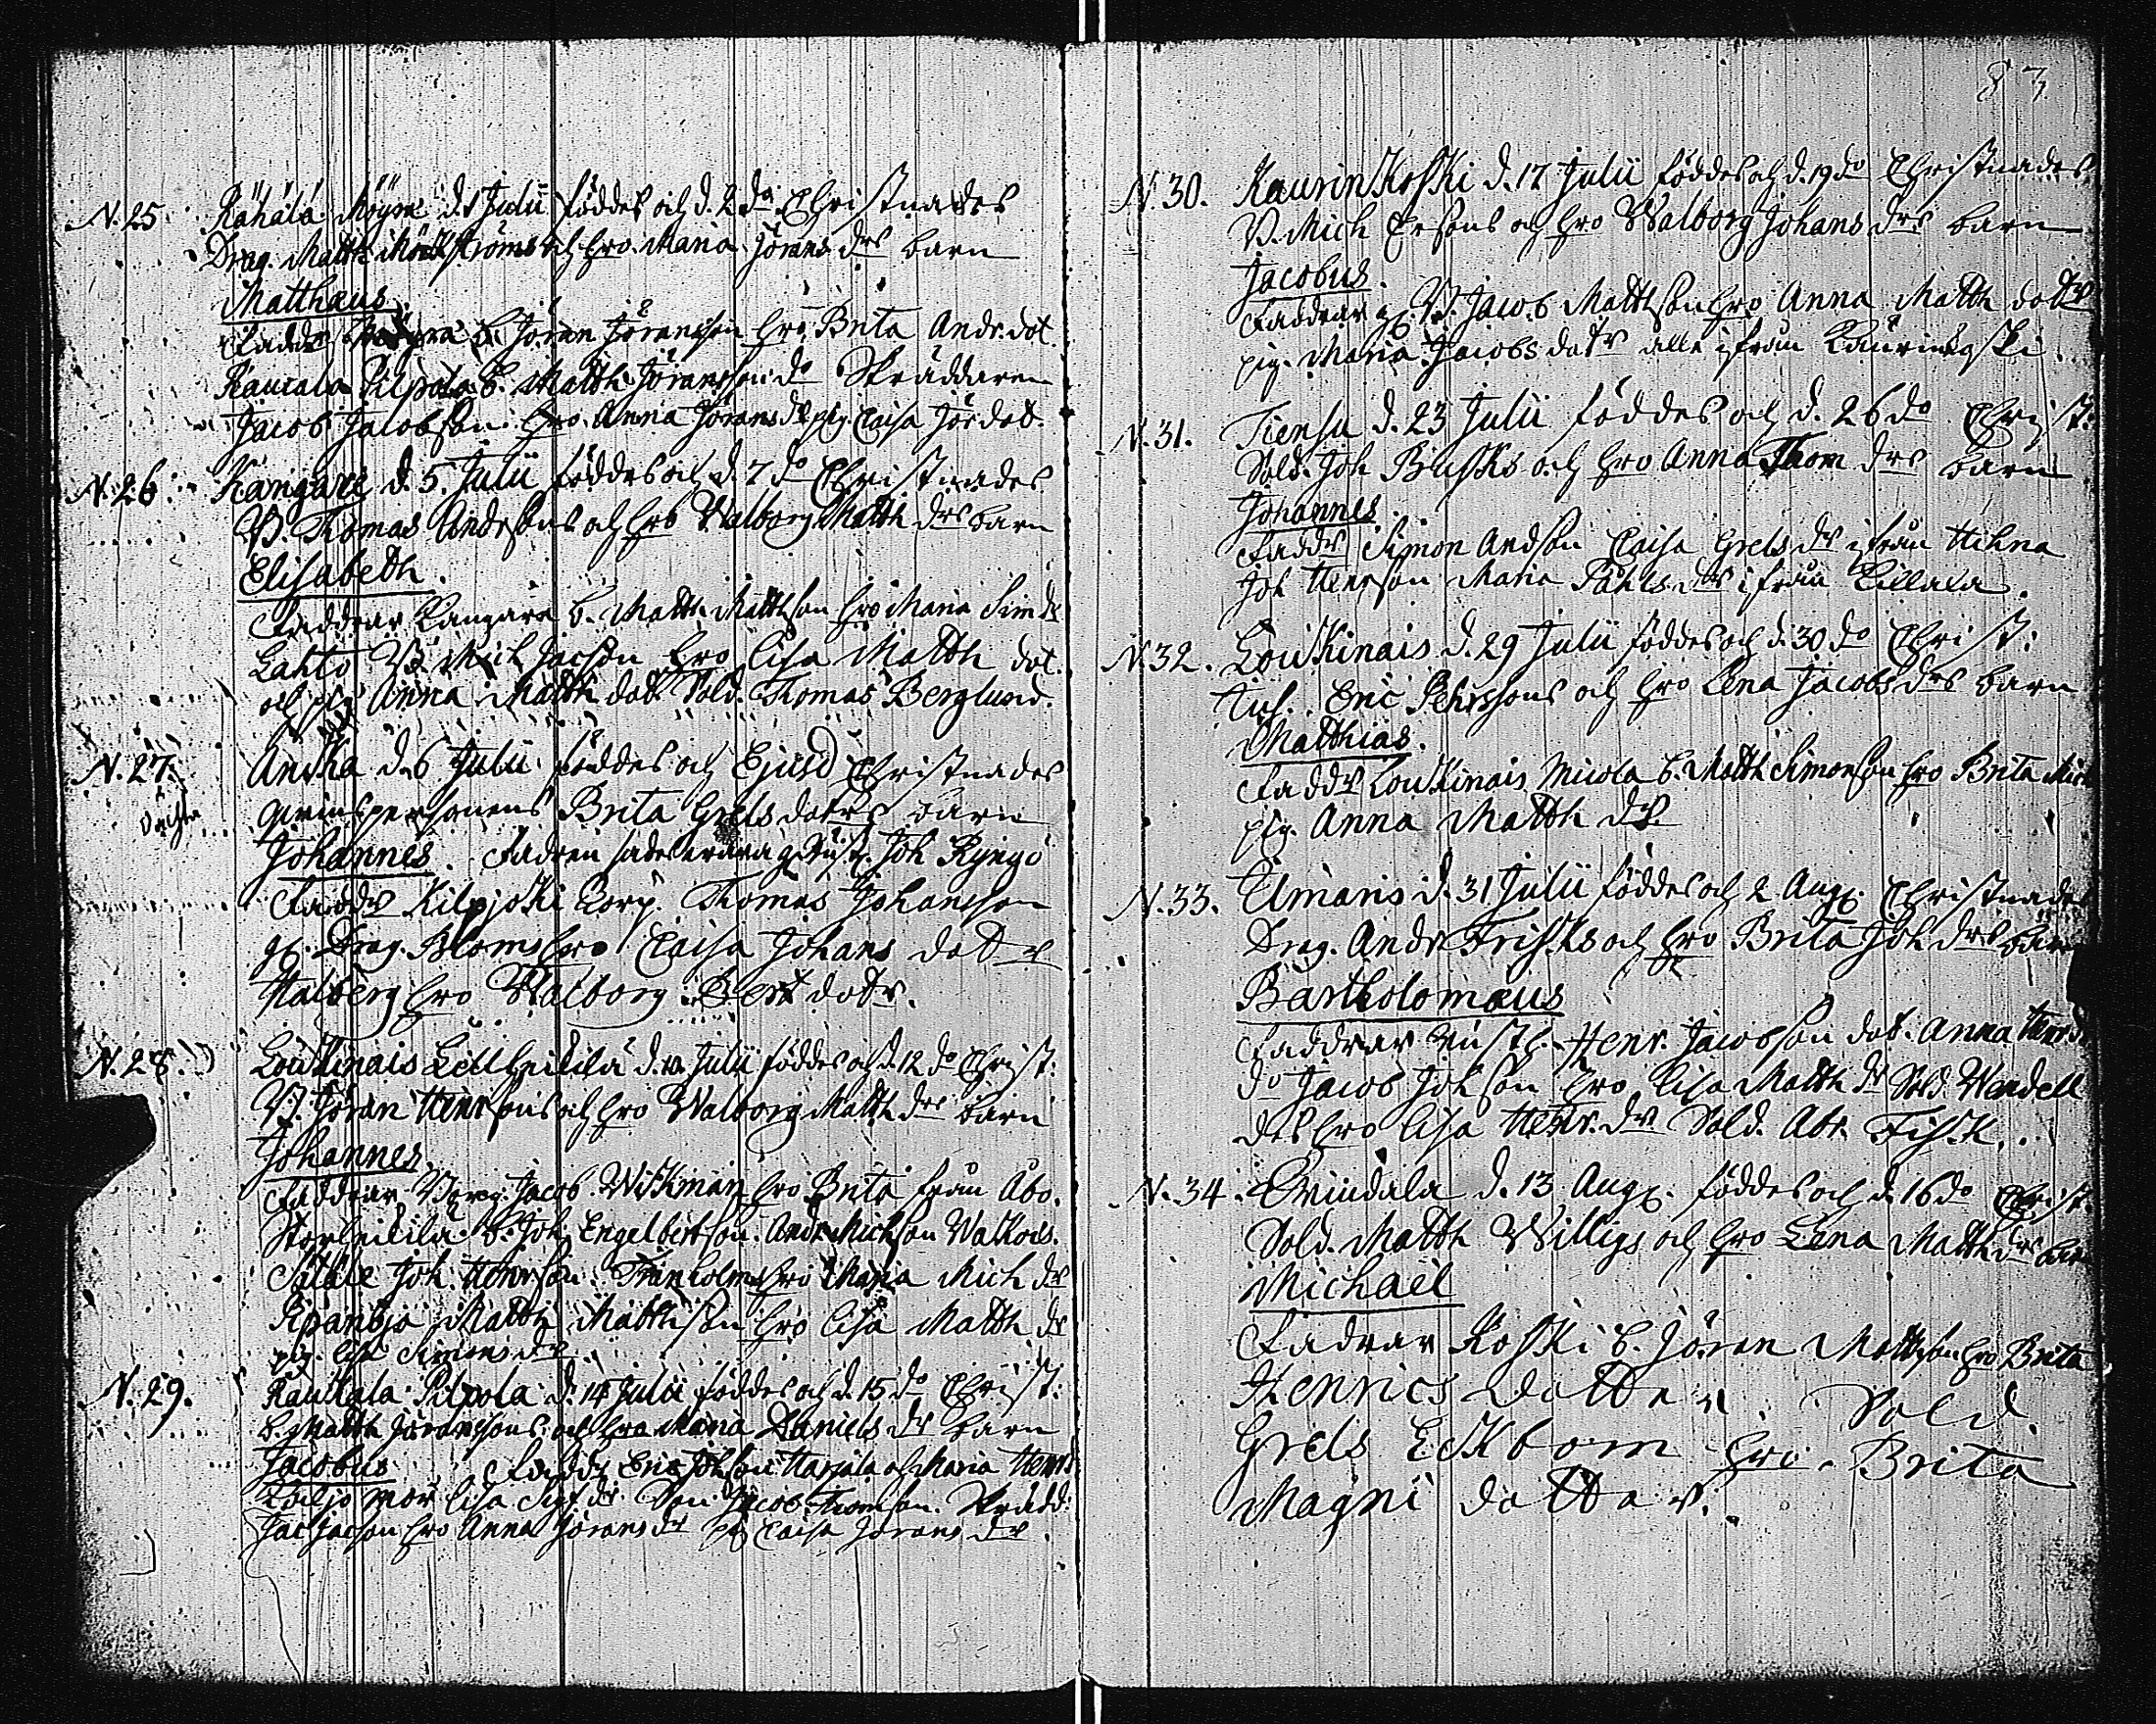 83
N. 25 Kähälä Möyrä d. 1 Julii föddes och d. 2 do Christnades
Drag. Matth. och hro. Maria Jörans drs barn
Matthæus.
Faddr b. Jöran Jöransson hro. Brita Andr. dot.
Kaucala Pilpola b. Matth Jöransson do Skräddaren
Jacob Jacobson hro. Anna Jörans dr pig. Caisa Jör dot.
N. 26. Kangare d. 5. Julii föddes och d. 7 do Christnades
B. Thomas Andrsons och hro Walborg Matth drs barn
Elisabeth.
Faddrar Kangara b. Matth. Matthson hro Maria Sim dr
Lahto B. Mich Jacson hro Lisa Matth dot.
och pig Anna Matth dott Sold. Thomas Berglund.
N. 27. d. 6 Julii föddes och Ejusd Christnades
qvinspersonens Brita Grels dotrs barn
Johannes. Fadren Joh Kyngö
Faddr Kilpjoki Corp. Thomas Johansson
Drag. Bloms hro Caisa Johans dottr
Halberg hro Walborg dotr.
N. 28. Louckinais Lill d. 10 Julii föddes och d. 12 do Christ:
B. Jöran Henrsons och hro Walborg Matth drs barn
Johannes
Faddrar, Jacob Wikman hro Brita från Åbo.
b. Joh. Engelbertson. Andr Michson
Joh Henrson. hro Maria Mich dr
Matth Matthson hro Lisa Matth dr
pig. Lisa Simons dr
N. 29. Kaukala Pilpola d. 14 Julii föddes och d. 15 do Christ:
b. Matth Jöranssons och hro Maria Daniels dr barn
Jacobus Faddr Eric Johson Harjala och Maria Henrs
mor Lisa Sigf dr Jacob Thomson Skrädd:
Jac Jacson hro Anna Jörans dr pig Caisa Jörans dr.
N. 30. Kaurinkoski d. 17 Julii föddes och d. 19 do Christnades
B. Mich Ersons och hro Walborg Johans drs barn
Jacobus.
Faddrar B. Jacob Mattson hro Anna Matth dottr
pig. Maria Jacobs dotr alle ifrån
N. 31. Tiensu d. 23 Julii föddes och d. 26 do Christ:
Sold. Joh Busks och hro Anna Thom drs barn
Johannes.
Faddr Simon Andson Caisa Grels dr ifrån Hihna
Joh Henrson Maria Påhls dr ifrån Killala.
N. 32. Louckinais d. 29 Julii föddes och d. 30 do Christ:
Eric Pehrssons och hro Lena Jacobs drs barn
Matthias.
Faddr Louckinais Micola b. Matth Simonson hro Brita Mich
pig. Anna Matth dr.
N. 33. Elmaris d. 31 Julii föddes och 2 Aug. Christnades
Drag. Andr Frisks och hro Brita Joh drs bar
Bartholomæus
Faddrar Henr. Jacobson dot. Anna Henr dr
do Jacob Johson hro Lisa Matth dr Sold. Wendell
des hro Lisa Henr. dr Sold. Abr. Fisk.
N. 34. d. 13 Aug. föddes och d. 16 do Christ.
Sold. Matth Willigs och hro Lena Matth drs bar
Michaël
Fadrar Koski b. Jöran Mattsson hro Brita
Henrics dotter Sold.
Grels Eckbom hro. Brita
Magni dotter.